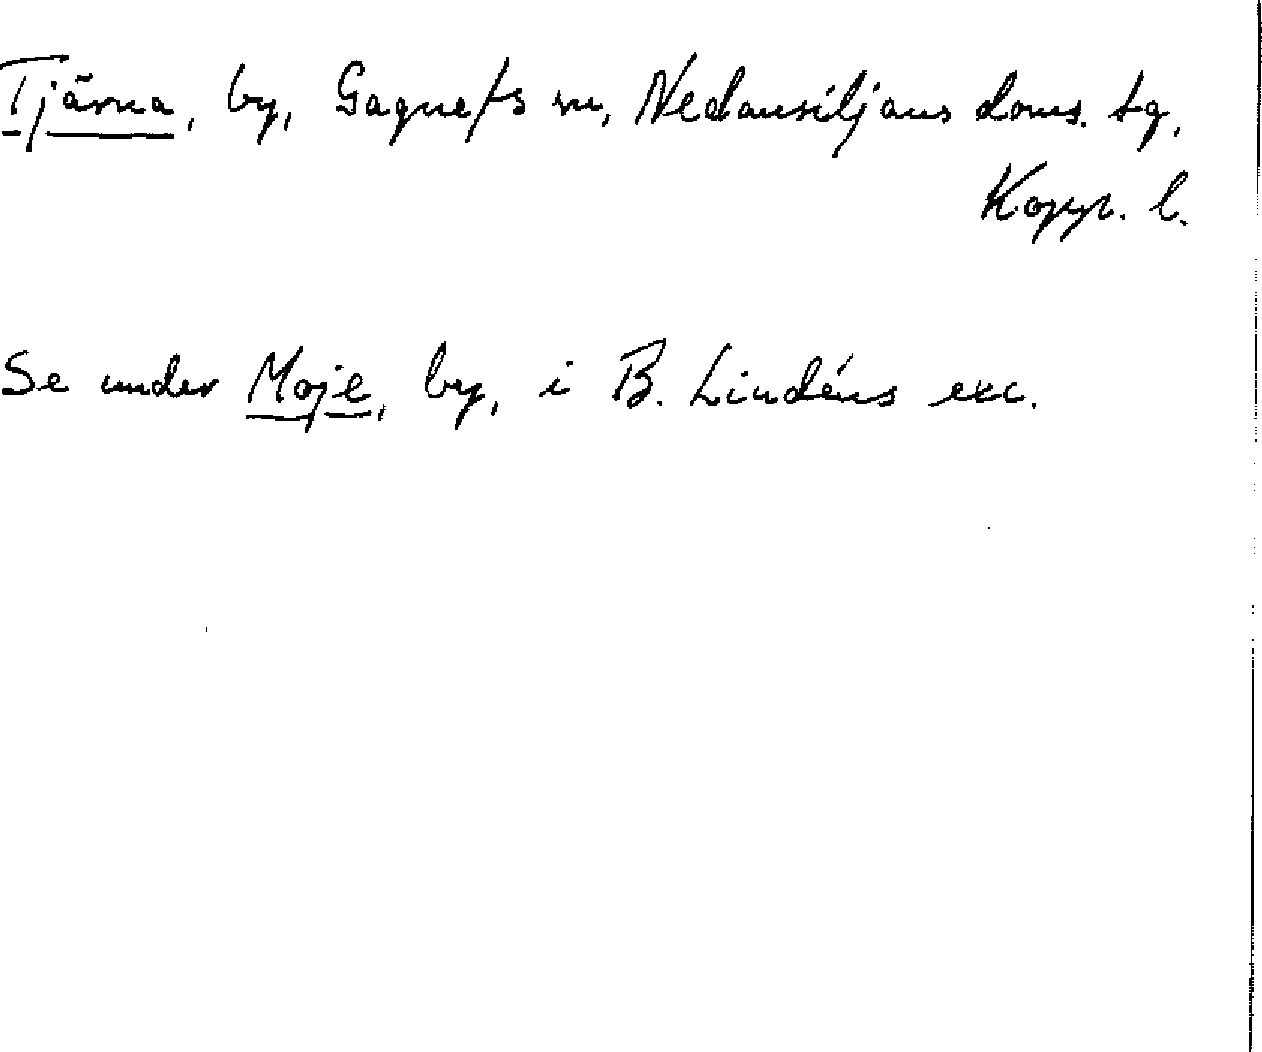 Tjärna, by, Gagnefs sn, Nedansiljans doms. tg,
Kopp. l.
Se under Moje, by, i B. Lindéns exc.